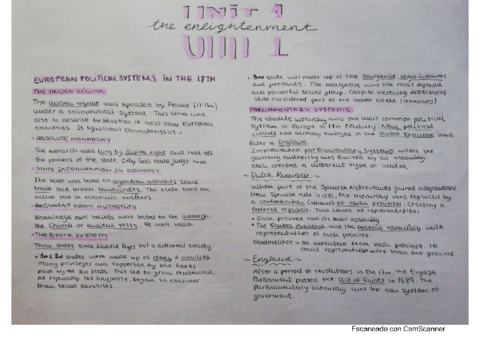 UNIT 1
the enlightenment
EUROPEAN POLITICAL SYSTEMS IN THE 18TH
THE ANCIEN REGIME
The ancien regime was operated by France
under a sociopolitical system. This term was
also to describe the situation in most other European
countries. Its significant characteristics:
- ABSOLUTE MONARCHY
The monarch was king by divine right and had all
the powers of the state. Only God could judge him.
- STATE INTERVENTION IN ECONOMY
The state was based on
trade and urban handicrafts. The state had an
active role in economic matters
- ARGUMENT FROM AUTHORITY
Knowledge and beliefs were based on the monarch,
the Church or ancient texts.
THE ESTATE SYSTEM
Three states
• 1st & 2nd states were made up of clergy & nobility.
Many privileges and supported by the taxes
paid by the 3rd state. This led to great resentment,
as especially the bourgeoisie began to consider
them social parasites.
• 3rd state was made up of the bourgeoisie, wage-labourers
and peasants. The bourgeoisie was the most dynamic
and powerful social group. Despite
still considered part of the lowest estate
PARLIAMENTARY SYSTEMS
The absolute monarchy was the most common political
system in Europe in 17th century. New political
already emerged in the Dutch Republic and
later in England
parliamentary systems where the
governing authority was limited by an assembly.
each created a different type of model.
~ Dutch Republic ~
When part of the Spanish Netherlands gained independence
from Spanish rule in, the monarchy was replaced by
a confederation creating a
federal republic. Two levels of representation:
• Each province had its own assembly
• The States General was the federal assembly with
representatives of each province
Stadtholder → an executive from each province. He
could represent more than one province
~ England ~
After a period of revolutions in the 17th, the English
Parliament passed the Bill of Rights in 1689. The
parliamentary monarchy was the new system of
government.
Escaneado con CamScanner